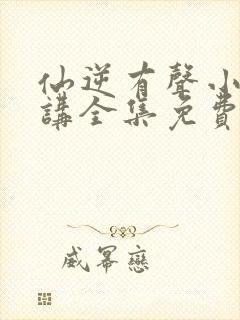 仙逆有聲小
講全集免費
威冪戀